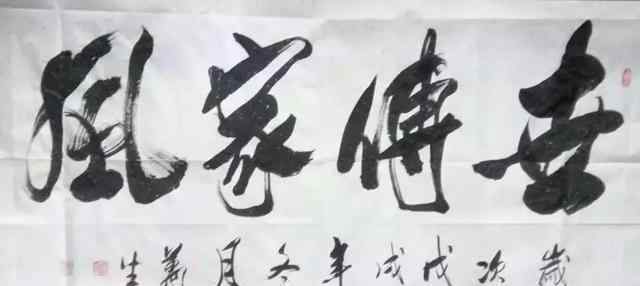 世傳家風
歲次戊戌年冬月生